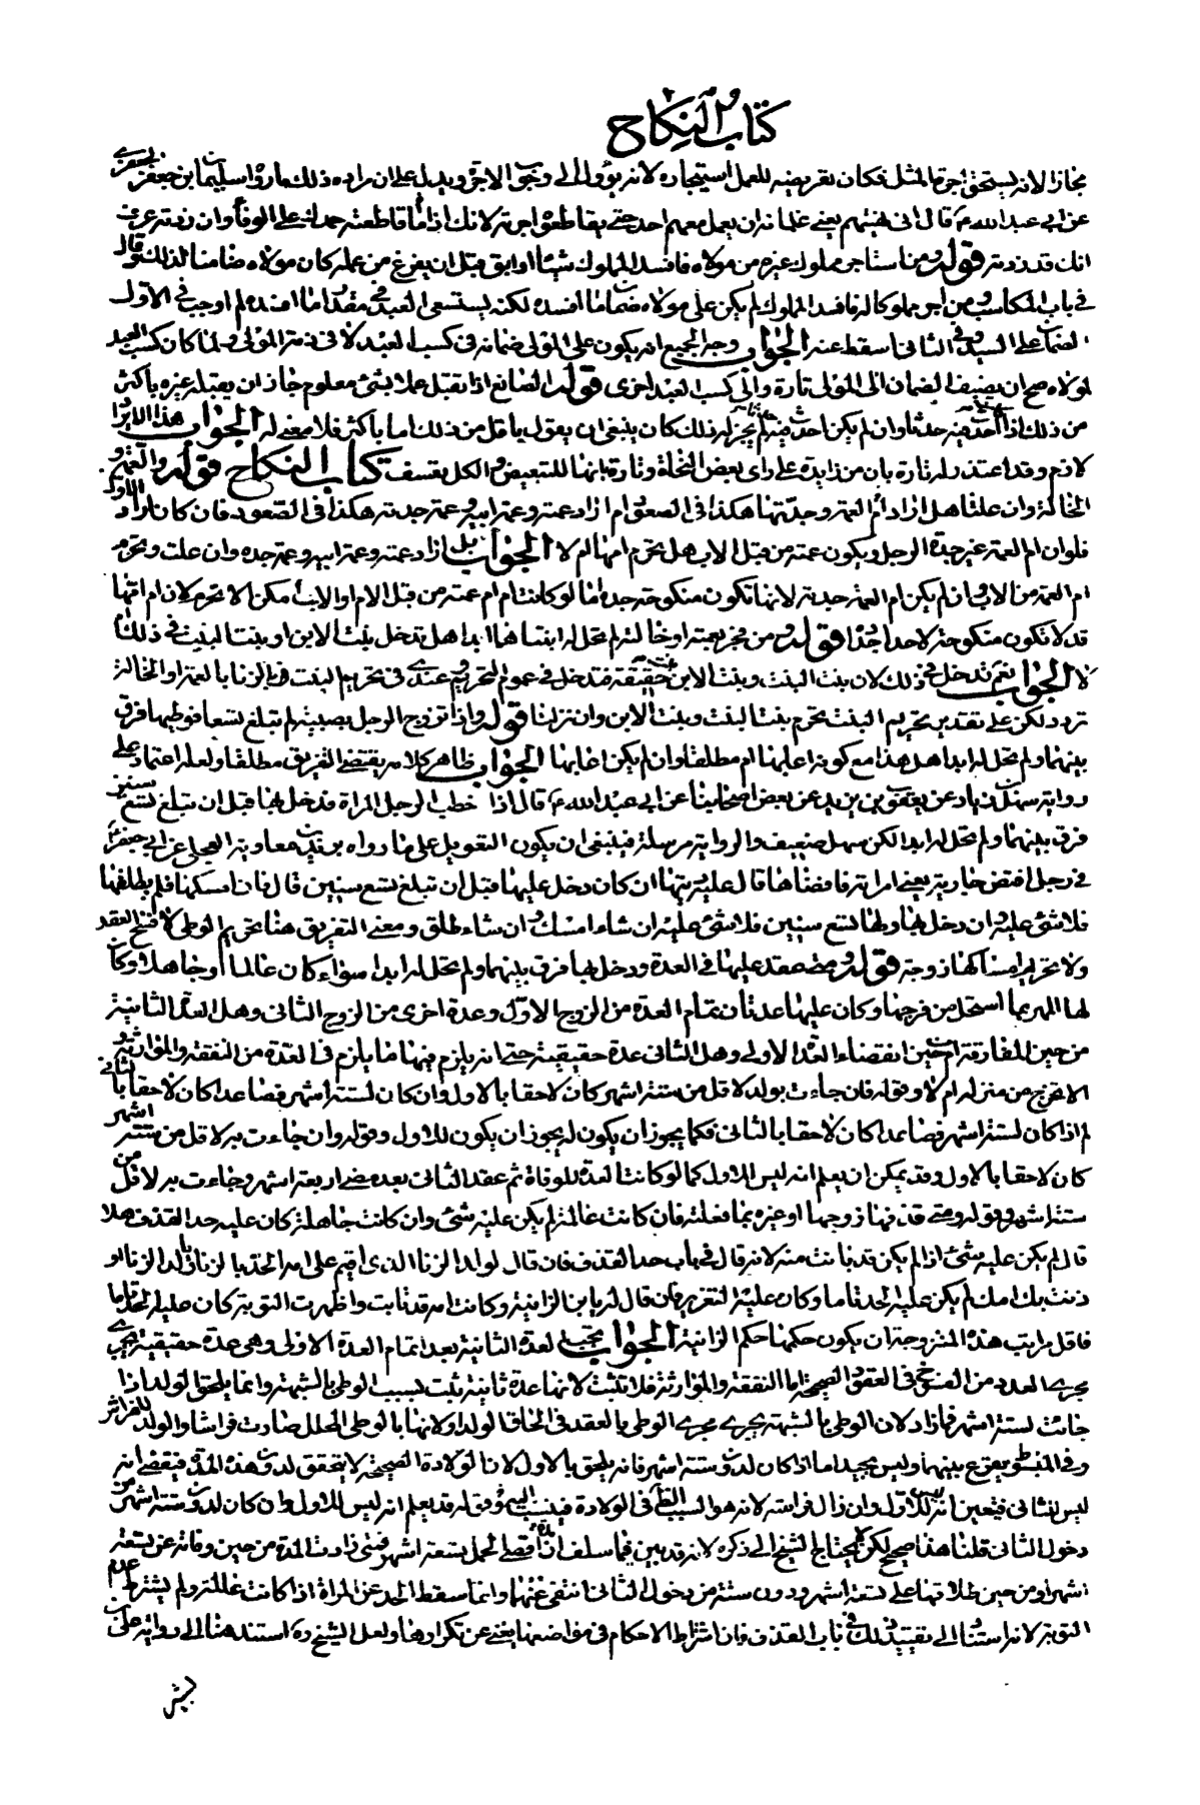 كتاب النكاح
مجازا لانه يستحق اجرة المثل فكان تعريضه للعمل استيجاره لانه يؤول الى وجوب الاجرة ويدل على ان مراده ذلك ما رواه سليمان بن جعفر الجعفري
عن ابي عبد الله ع قال اني نهيتهم يعني غلمانه ان يعمل معهم احد حتى يقاطعوه اجرته لانك اذا ما قاطعته حمدك على الوفاء وان زدته عرف
انك قد زدته قوله ومن استاجر مملوك غيره من مولاه فافسد المملوك شيئا او ابق قبل ان يفرغ من عمله كان مولاه ضامنا لذلك وقال
في باب المكاسب من اجر مملوكا له فافسد المملوك لم يكن على مولاه ضمان ما افسده لكنه يستسعى العبد في مقدار ما افسده فلم اوجب في الاول
الضمان على السيد وفي الثاني اسقطه عنه الجواب وجه الجمع انه يكون على المولى ضمانه في كسب العبد لا في ذمة المولى ولما كان كسب العبد
لمولاه صح ان يضيف الضمان الى المولى تارة والى كسب العبد اخرى قوله الصانع اذا تقبل عملا بشئ معلوم جاز ان يقبله غيره باكثر
من ذلك اذا احدث فيه حدثا وان لم يكن احدث فيه حدثا لم يجز له ذلك كان ينبغي ان يقول باقل من ذلك اما باكثر فلا معنى له الجواب هذا الايراد
لازم وقد اعتذر له تارة بان من زايدة على راي بعض النحاة وتارة بانها للتبعيض والكل تعسف كتاب النكاح قوله والعمة و
الخالة وان علتا هل اراد ام العمة وجدتها هكذا في الصعود ام اراد عمته وعمة ابيه وعمة جدته هكذا في الصعود فان كان اراد الاول
فلو ان ام العمة غير جدة الرجل ويكون عمته من قبل الاب هل يحرم امها ام لا الجواب بل اراد عمته وعمة ابيه وعمة جده وان علت ويحرم
ام العمة من الاب وان لم يكن ام العمة جدته لانها تكون منكوحة جده اما لو كانت ام ام عمته من قبل الام او الاب امكن الا تحرم لان ام امها
قد لا تكون منكوحة لاحد اجداده قوله ومن فجر بعمته او خالته لم تحل له ابنتاهما ابدا هل تدخل بنت الابن او بنت البنت في ذلك ام
لا الجواب نعم تدخل في ذلك لان بنت البنت وبنت الابن بنت حقيقة فتدخل في عموم التحريم وعندي في تحريم البنت في الزنا بالعمة او الخالة
تردد لكن على تقدير تحريم البنت تحرم بنت البنت وبنت الابن وان نزلنا قوله واذا تزوج الرجل بصبية لم تبلغ تسعا فوطيها فرق
بينهما ولم تحل له ابدا هل هذا مع كونه اعابها ام مطلقا وان لم يكن اعابها الجواب ظاهر كلامه يقتضي التفريق مطلقا ولعله اعتمد على
رواية سهل بن زياد عن يعقوب بن يزيد عن بعض اصحابنا عن ابي عبد الله ع قال اذا خطب الرجل المراة فدخل بها قبل ان تبلغ تسع سنين
فرق بينهما ولم تحل له ابدا لكن سهل ضعيف والرواية مرسلة فينبغي ان يكون التعويل على ما رواه بريد بن معاوية العجلي عن ابي جعفر ع
في رجل افتض جارية يعني امراته فافضاها قال عليه ديتها ان كان دخل عليها قبل ان تبلغ تسع سنين قال فان امسكها فلم يطلقها
فلا شئ عليه وان دخل بها ولها تسع سنين فلا شئ عليه ان شاء امسك وان شاء طلق ومعنى التفريق هنا تحريم الوطي لا فسخ العقد
ولا تحريم امساكها زوجة قوله ومتى عقد عليها في العدة ودخل بها فرق بينهما ولم تحل له ابدا سواء كان عالما او جاهلا وكان
لها المهر بما استحل من فرجها وكان عليها عدتان تمام العدة من الزوج الاول وعدة اخرى من الزوج الثاني وهل العدة الثانية
من حين المفارقة ام حين انقضاء العدة الاولى وهل الثاني عدة حقيقية حتى انه يلزم فيها ما يلزم في العدة من النفقة والموارثة و
الا تخرج من منزله ام لا وقوله فان جاءت بولد لاقل من ستة اشهر كان لاحقا بالاول وان كان لستة اشهر فصاعدا كان لاحقا بالثاني
لم اذا كان لستة اشهر فصاعدا كان لاحقا بالثاني فكما يجوز ان يكون له يجوز ان يكون للاول وقوله وان جاءت به لاقل من ستة اشهر
كان لاحقا بالاول وقد يمكن ان يعلم انه ليس للاول كما لو كانت العدة للوفاة ثم عقد الثاني بعد مضي اربعة اشهر وجاءت به لاقل من
ستة اشهر وقوله ومتى قذفها زوجها او غيره بما فعلته فان كانت عالمة لم يكن عليه شئ وان كانت جاهلة كان عليه حد القذف هلا
قال لم يكن عليه شئ اذا لم يكن قد تابت منه لانه قال في باب حد القذف فان قال لولد الزنا الذي اقيم على امه الحد بالزنا يا ولد الزنا او
زنت بك امك لم يكن عليه الحد تاما وكان عليه التعزير فان قال له يا بن الزانية وكانت امه قد تابت واظهرت التوبة كان عليه الحد تاما
فاقل مراتب هذه المتزوجة ان يكون حكمها حكم الزانية الجواب تجب العدة الثانية بعد اتمام العدة الاولى وهي عدة حقيقية تجري
مجرى العدد من الفسوخ في العقود الصحيحة اما النفقة والموارثة فلا تثبت لانها عدة ثانية تثبت لسبب الوطي بالشبهة وانما يلحق الولد اذا
جاءت لستة اشهر فما زاد لان الوطي بالشبهة يجري مجرى الوطي بالعقد في الحاق الولد ولانها بالوطي المحلل صارت فراشا والولد للفراش
وفي المبسوط يقرع بينهما وليس بجيد اما اذا كان لدون ستة اشهر فانه يلحق بالاول لان الولادة الصحيحة لا يتحقق لدون هذه المدة فيقضي انه
ليس للثاني فتعين انه للاول وان زال فراشه لانه هو السبب الظاهر في الولادة فينسب اليه وقوله قد يعلم انه ليس للاول وان كان لدون ستة اشهر من
دخول الثاني قلنا هذا صحيح لكن لا يحتاج الشيخ الى ذكره لانه قد بين فيما سلف ان اقصى الحمل تسعة اشهر فمتى زادت المدة من حين وفاته عن تسعة
اشهر او من حين طلاقها على تسعة اشهر ودون ستة من دخول الثاني انتفى عنهما وانما سقط الحد عن المراة اذا كانت عالمة ولم يشترط عدم
التوبة لانه استند الى تقييد ذلك في باب القذف فان اشتراط الاحكام في مواضعها يغني عن تكرارها ولعل الشيخ ره استند هنا الى رواية علي بن
بشير